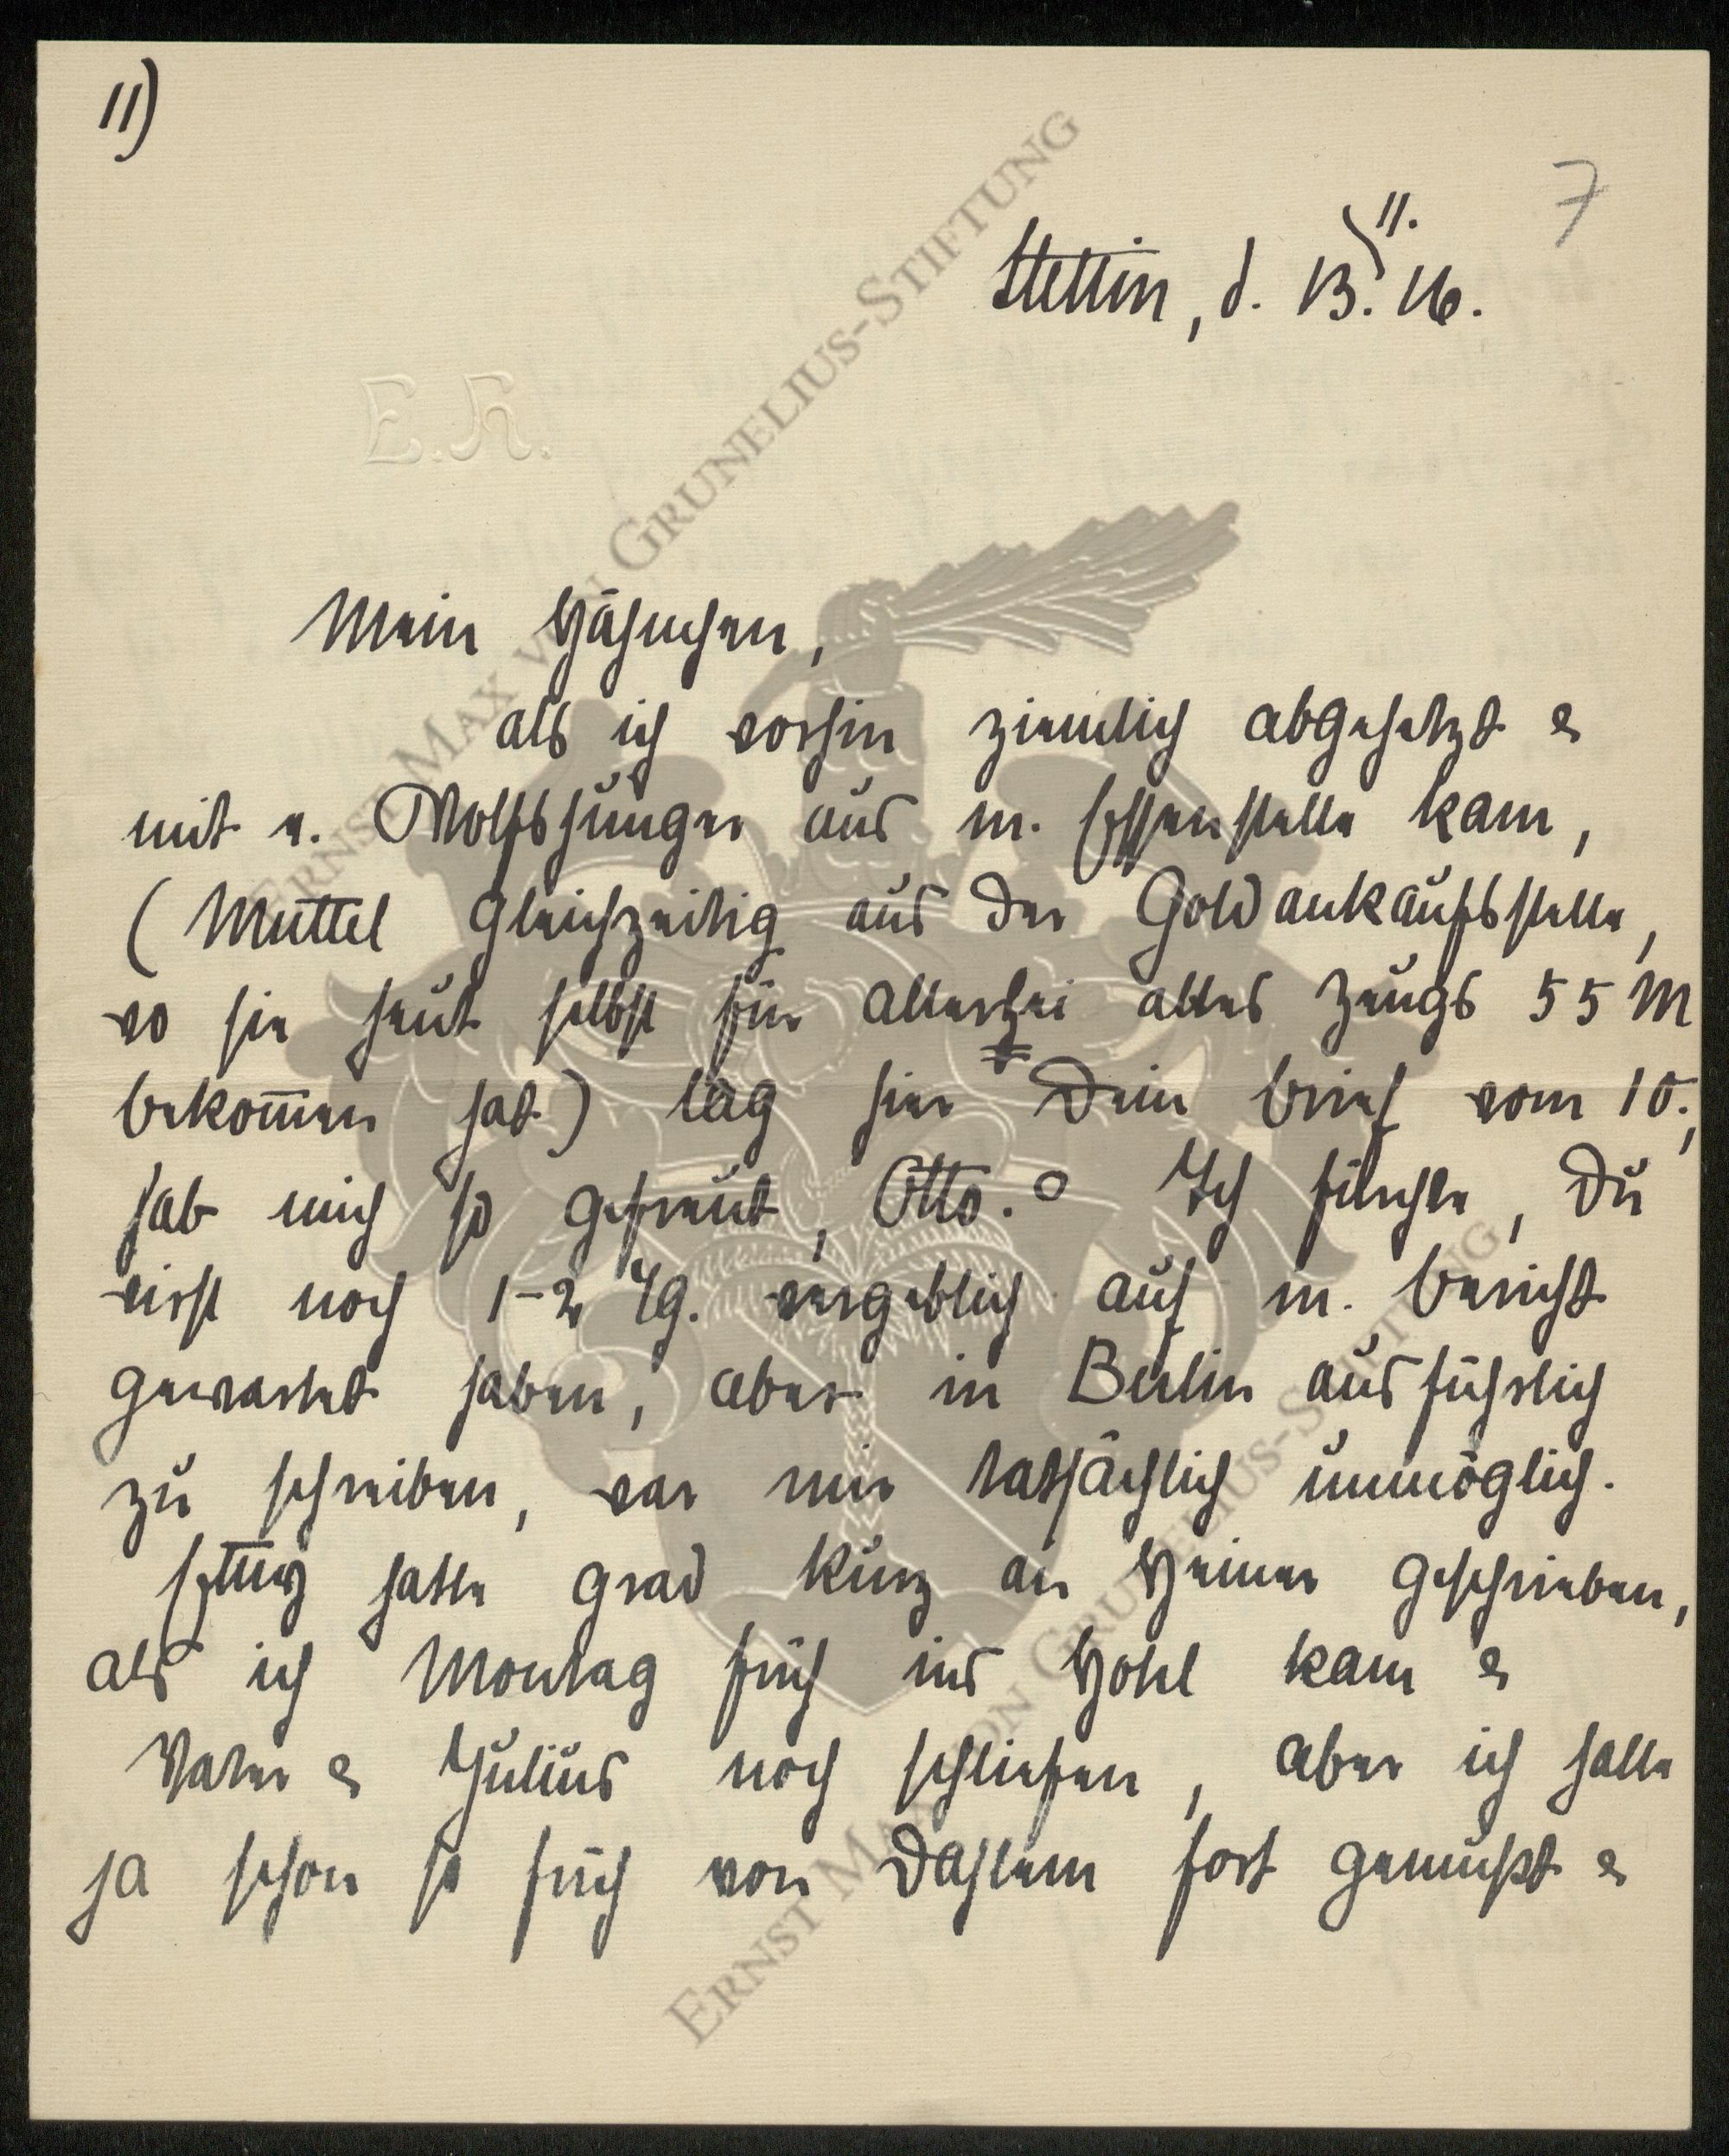 11)
7
Stettin, d. 13. 11. 16.
E.H.
Mein Hähnchen,
als ich vorhin ziemlich abgehetzt &
mit u. Wolfshunger aus m. Essenstelle kam,
(Muttel gleichzeitig aus der Goldankaufsstelle,
wo sie heut selbst für allerhei altes Zeugs 55 M
bekommen hat) lag hier Dein Brief vom 10.,
hab mich so gefreut, Otto. Ich fürchte, Du
wirst noch 1-2 Tg. vergeblich auf m. Bericht
gewartet haben, aber in Berlin ausführlich
zu schreiben, war mir tatsächlich unmöglich.
Etty hatte grad kurz an Heiner geschrieben,
als ich Montag früh ins Hotel kam &
Vater & Julius noch schliefen, aber ich hatte
ja schon so früh von Dahlem fort gemußt &
ERNST MAX VON GRUNELIUS-STIFTUNG
ERNST MAX VON GRUNELIUS-STIFTUNG